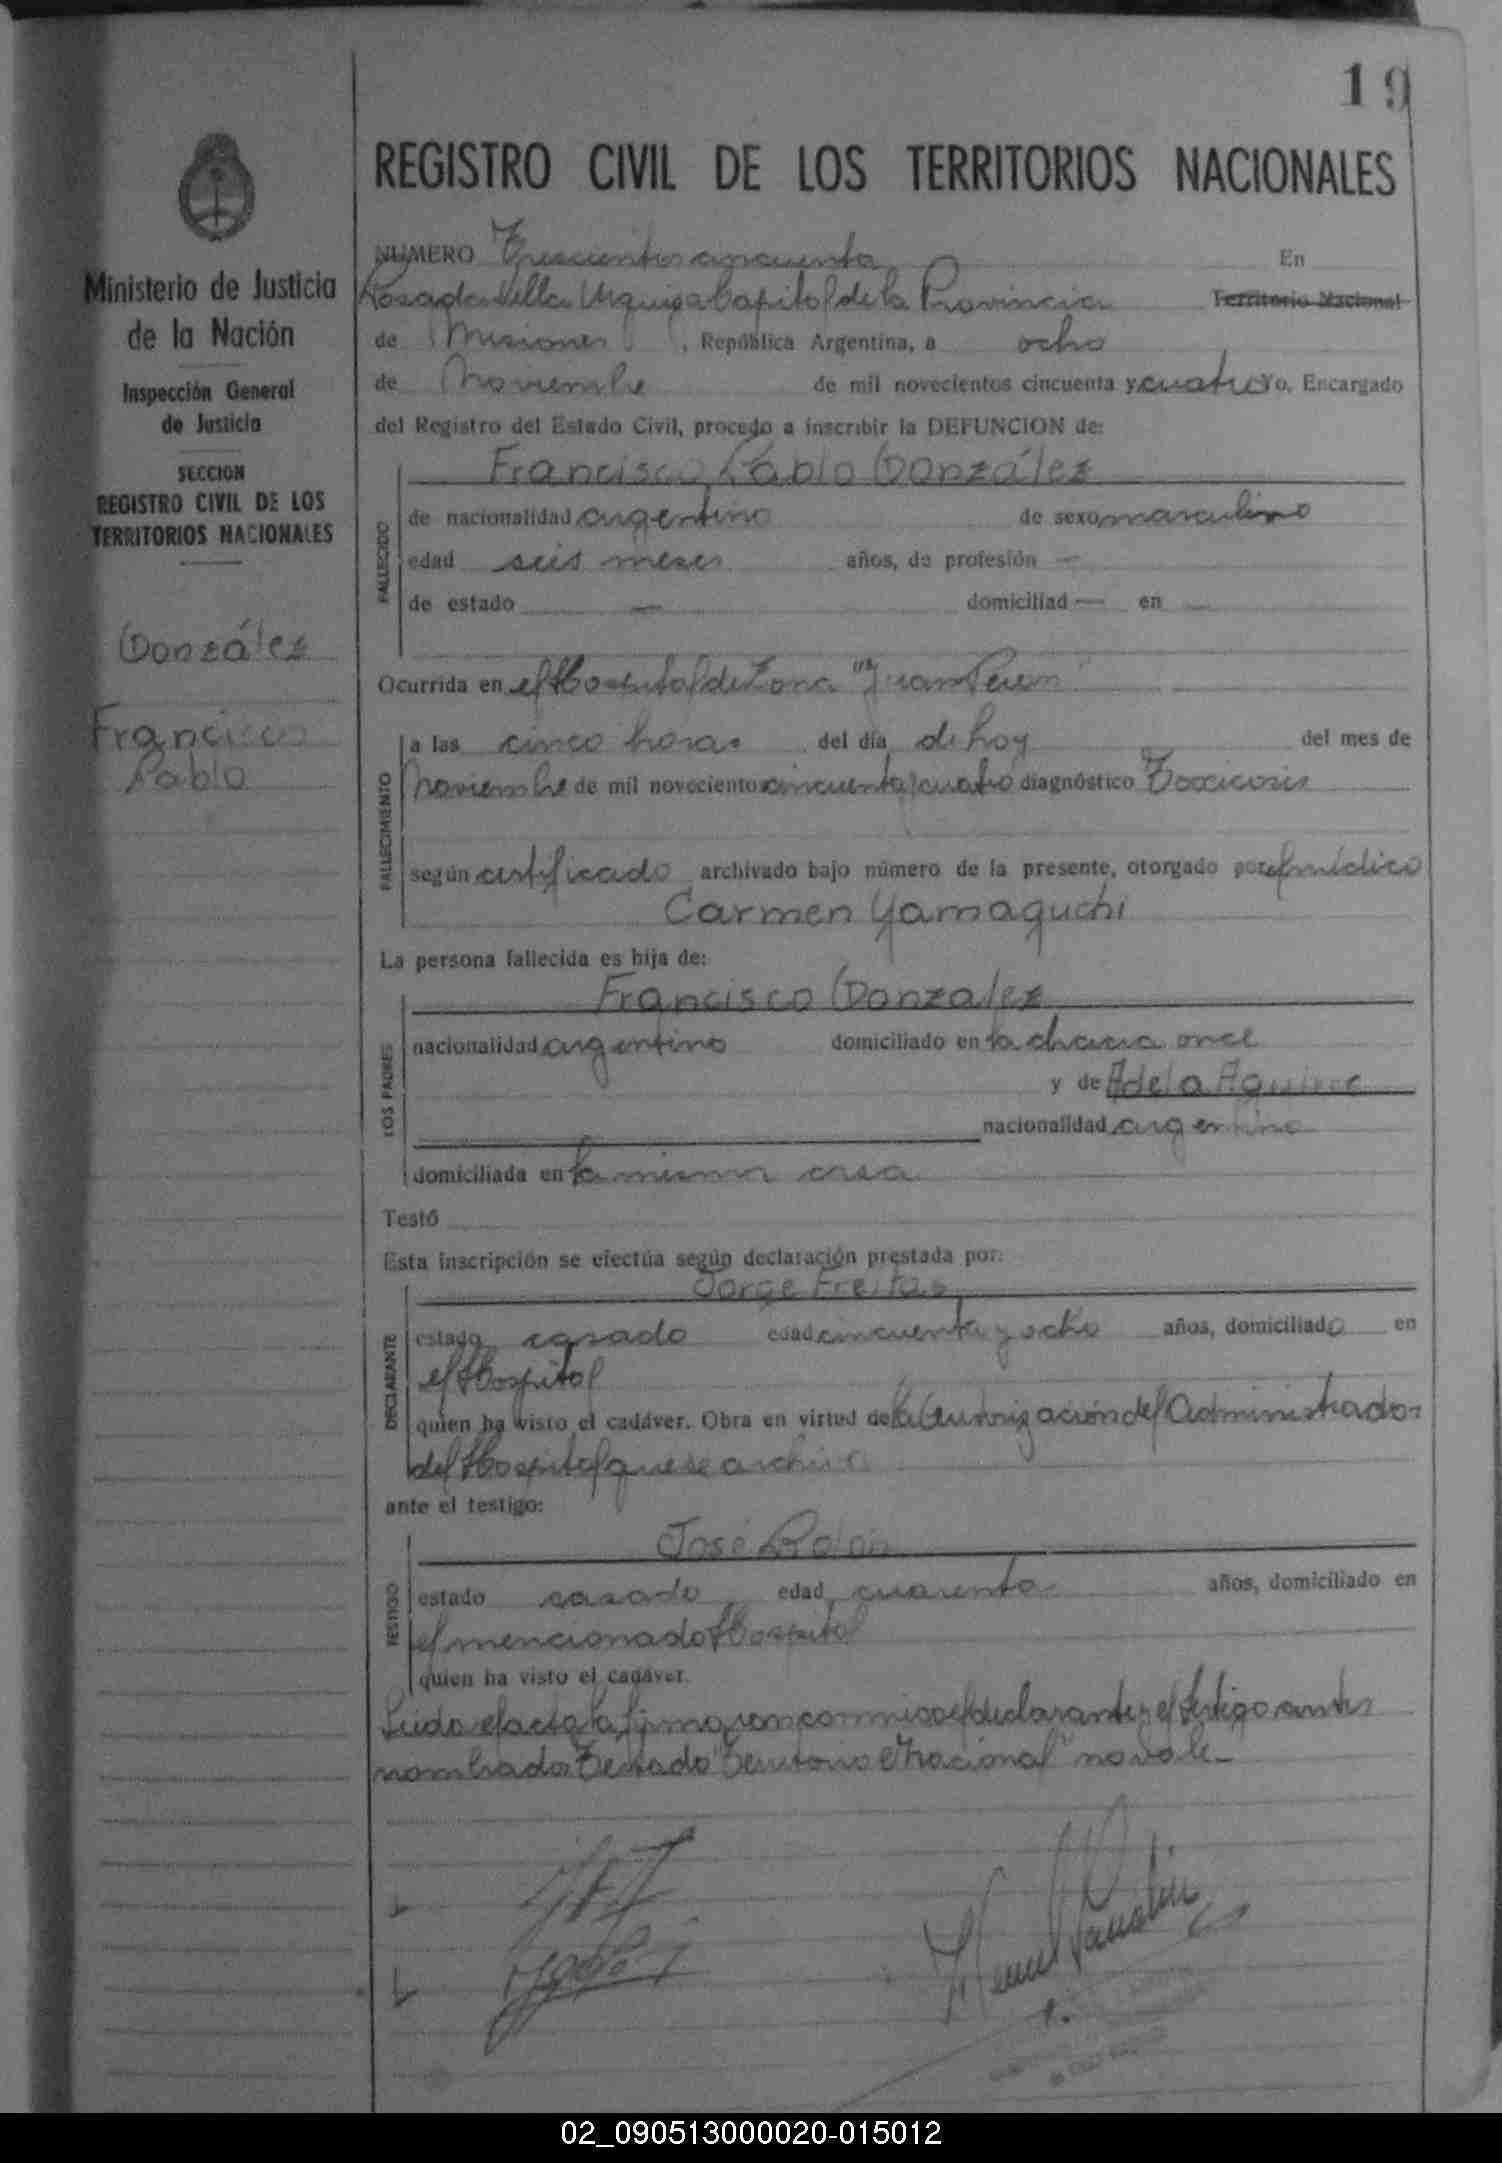 19
REGISTRO CIVIL DE LOS TERRITORIOS NACIONALES
Ministerio de Justicia
de la Nación
Inspección General
de Justicia
SECCION
REGISTRO CIVIL DE LOS
TERRITORIOS NACIONALES
González
Francisco
Pablo
NUMERO Trescientos cincuenta En
Posadas Villa Urquiza Capital de la Provincia Territorio Nacional
de Misiones, República Argentina, a ocho
de Noviembre de mil novecientos cincuenta y cuatro Yo, Encargado
del Registro del Estado Civil, procedo a inscribir la DEFUNCION de:
Francisco Pablo González
FALLECIDO
de nacionalidad argentino de sexo masculino
edad seis meses años, de profesión —
de estado — domiciliad — en —
Ocurrida en el Hospital de Zona "Juan Peron"
FALLECIMIENTO
a las cinco horas del día de hoy del mes de
Noviembre de mil novecientos cincuenta y cuatro diagnóstico Toxicosis
según certificado archivado bajo número de la presente, otorgado por el médico
Carmen Yamaguchi
La persona fallecida es hija de:
LOS PADRES
Francisco Gonzalez
nacionalidad argentino domiciliado en la chacra once
y de Adela Aguirre
nacionalidad argentina
domiciliada en la misma casa
Testó
Esta inscripción se efectúa según declaración prestada por:
DECLARANTE
Jorge Freitas
estado casado edad cincuenta y ocho años, domiciliado en
el Hospital
quien ha visto el cadáver. Obra en virtud de la Autorización del Administrador
del Hospital que se archiva
ante el testigo:
TESTIGO
José Rolón
estado casado edad cuarenta años, domiciliado en
el mencionado Hospital
quien ha visto el cadáver.
Leida el acta la firmaron conmigo el declarante y el testigo antes
nombrados Testado "Territorio Nacional" no vale—
02_090513000020-015012